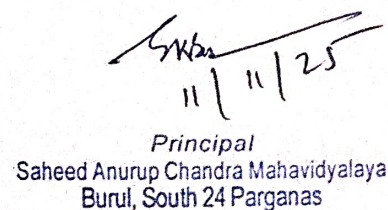 11/11/25
Principal
Saheed Anurup Chandra Mahavidyalaya
Burul, South 24 Parganas